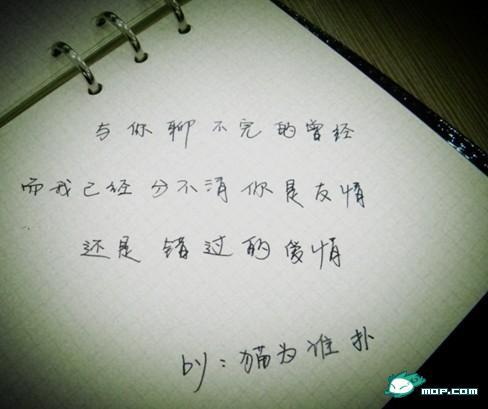 与你聊不完的曾经
而我已经分不清你是友情
还是错过的爱情
by：猫为准扑
mop.com